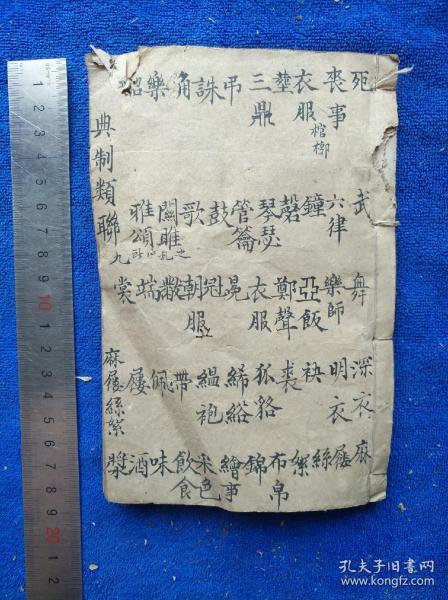 死 喪事 衣服 棺槨 塟 三鼎 弔 誄 角 樂 韶
武 六律 鐘 磬 琴瑟 管籥 鼓 歌 關雎之亂 雅頌
舞 樂師 亞飯 鄭聲 衣服 冕 冠 朝服 黻 端 裳
深衣 明衣 袂 裘 狐貉 絺綌 緼袍 帶 佩 屨 麻屨絲絮
麻 屨 絲 絮 布帛 錦 繪事 米色 飲食 味 酒 漿
典制類聯 九
孔夫子旧书网
www.kongfz.com
1 2 3 4 5 6 7 8 9 10 1 2 3 4 5 6 7 8 9 20 1 2